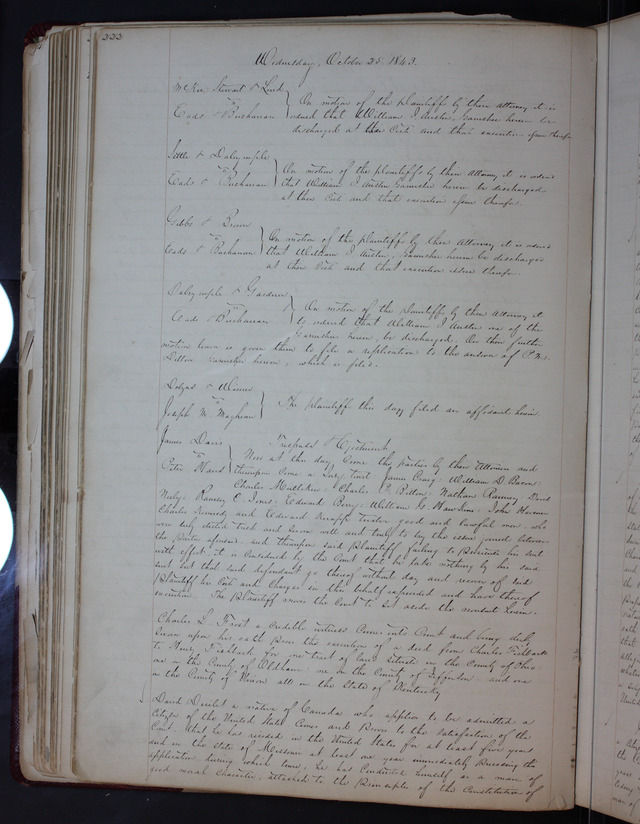 222
Wednesday, October 25, 1843.
McKee Stewart & Lind
vs
Eads & Buchanan
On motion of the plaintiffs by there attorney it is
ordered that William I Austin, Garnishee herein be
discharged at their Cost and that execution issue therefor
& Dalrymple
vs
Eads & Buchanan
On motion of the plaintiffs by there attorney it is ordered
that William I Austin Garnishee herein be discharged
at there Cost and that execution issue therefor.
Gibbs & Brown
vs
Eads & Buchanan
On motion of the plaintiffs by there attorney it is ordered
that William I. Austin, Garnishee herein be discharged
at there Cost and that execution issue therefor.
Dalrymple & Gardner
vs
Eads & Buchanan
On motion of the Plaintiffs by there attorney it
is ordered that William I Austin one of the
Garnishee herein, be discharged. On there further
motion leave is given them to file a replication to the answer of P. M.
Dillon Garnishee herein, which is filed.
& Winner
vs
Joseph M.
The plaintiff this day filed an affidavit herein
James Davis
vs
Peter
Trespass & Ejectment
Now at this day Come the parties by there attornies and
thereupon Come a Jury, towit James Craig, William D Bacon
Charles Mullikin, Charles Nathan Ramsey, David
Ramsey C. Edward Berry, William G. Hawkins, John
Charles Kennedy and Edward Knapp twelve good and lawful men who
are duly elected tried and sworn well and truly to try the issue joined between
the parties aforesaid and thereupon said Plaintiff failing to Prosecute his suit
with effect it is Considered by the Court that he take nothing by his said
suit but that said defendant go thereof without day and recover of said
Plaintiff his Costs and Charges in this behalf expended and have thereof
execution. The Plaintiff moves the Court to Set aside the nonsuit herein.
Charles L. Frost a Credible witness Comes into Court and being duly
Sworn upon his oath Proves the execution of a deed from Charles Fishback
to Fishback for one tract of land situate in the County of Ohio
one in the County of Oldham one in the County of Jefferson and one
in the County of Union all in the State of Kentucky
David a native of Canada who applies to be admitted a
Citizen of the United States Comes and Proves to the Satisfaction of the
Court that he has resided in the United States for at least five years
and in the State of Missouri at least one year immediately Preceding this
application during which time, he has Conducted himself as a man of
good moral character, attached to the Principles of the Constitution of